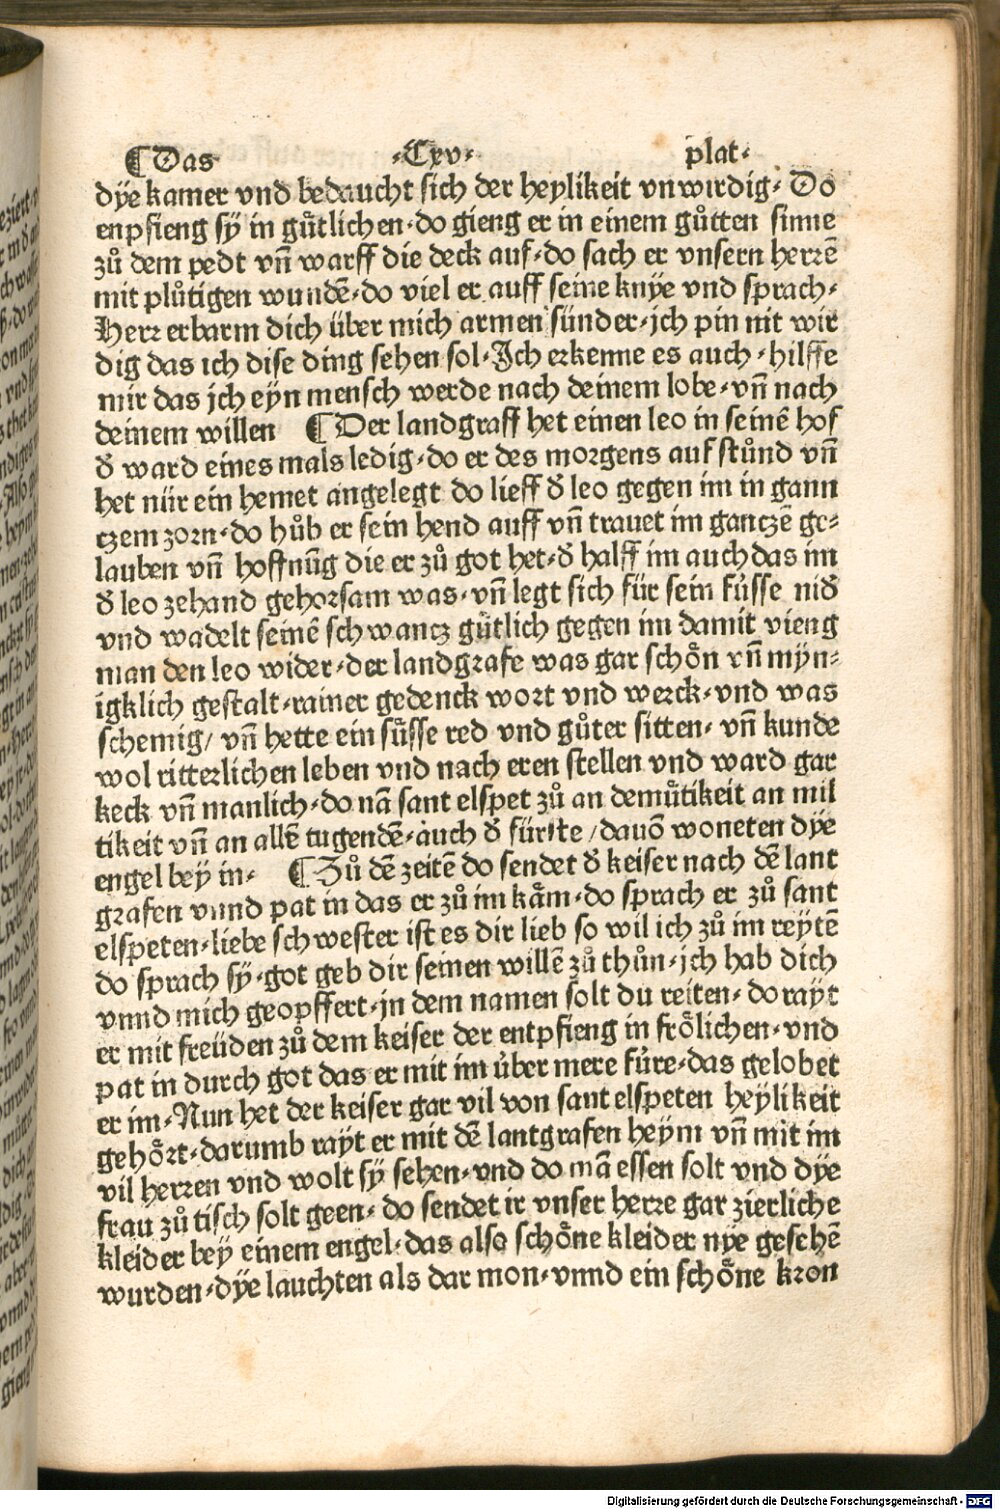 ¶ Das ·Cxv· plat·
dÿe kamer vnd bedaucht sich der heylikeit vnwirdig· Do
enpfieng sÿ in guͤtlichen·do gieng er in einem guͦtten sinne
zuͦ dem pedt vñ warff die deck auf·do sach er vnsern herrẽ
mit pluͦtigen wundẽ·do viel er auff seine knÿe vnd sprach·
Herr erbarm dich über mich armen sünder·jch pin nit wir
dig das ich dise ding sehen sol·Jch erkenne es auch·hilffe
mir das jch eyn mensch werde nach deinem lobe·vñ nach
deinem willen ¶ Der landgraff het einen leo in seinẽ hof
đ ward eines mals ledig·do er des morgens auf stuͦnd vñ
het nür ein hemet angelegt do lieff đ leo gegen im in gann
czem zorn·do huͦb er sein hend auff vñ trauet im ganczẽ ge-
lauben vñ hoffnũg die er zuͦ got het·đ halff im auch das im
đ leo zehand gehorsam was·vñ legt sich für sein füsse niđ
vnd wadelt seinẽ schwancz guͤtlich gegen im damit vieng
man den leo wider·der landgrafe was gar schoͤn vñ mÿn-
igklich gestalt·rainer gedenck wort vnd werck·vnd was
schemig/ vñ hette ein suͤsse red vnd guͦter sitten· vñ kunde
wol ritterlichen leben vnd nach eren stellen vnd ward gar
keck vñ manlich·do nã sant elspet zuͦ an demuͤtikeit an mil
tikeit vñ an allẽ tugendẽ·auch đ fürste/dauõ woneten dÿe
engel beÿ in· ¶ Zuͦ dẽ zeitẽ do sendet đ keiser nach dẽ lant
grafen vnnd pat in das er zuͦ im kaͤm·do sprach er zuͦ sant
elspeten·liebe schwester ist es dir lieb so wil ich zuͦ im reÿtẽ
do sprach sÿ·got geb dir seinen willẽ zuͦ thuͦn·jch hab dich
vnnd mich geopffert·jn dem namen solt du reiten·do rayt
er mit freüden zuͦ dem keiser der entpfieng in froͤlichen·vnd
pat in durch got das er mit im über mere fuͤre·das gelobet
er im·Nun het der keiser gar vil von sant elspeten heylikeit
gehoͤrt·darumb rayt er mit dẽ lantgrafen heym vñ mit im
vil herren vnd wolt sÿ sehen·vnd do mã essen solt vnd dÿe
frau zuͦ tisch solt geen·do sendet ir vnser herre gar zierliche
kleider beÿ einem engel·das also schoͤne kleider nÿe gesehẽ
wurden·dÿe lauchten als dar mon·vnnd ein schoͤne kron
Digitalisierung gefördert durch die Deutsche Forschungsgemeinschaft - DFG